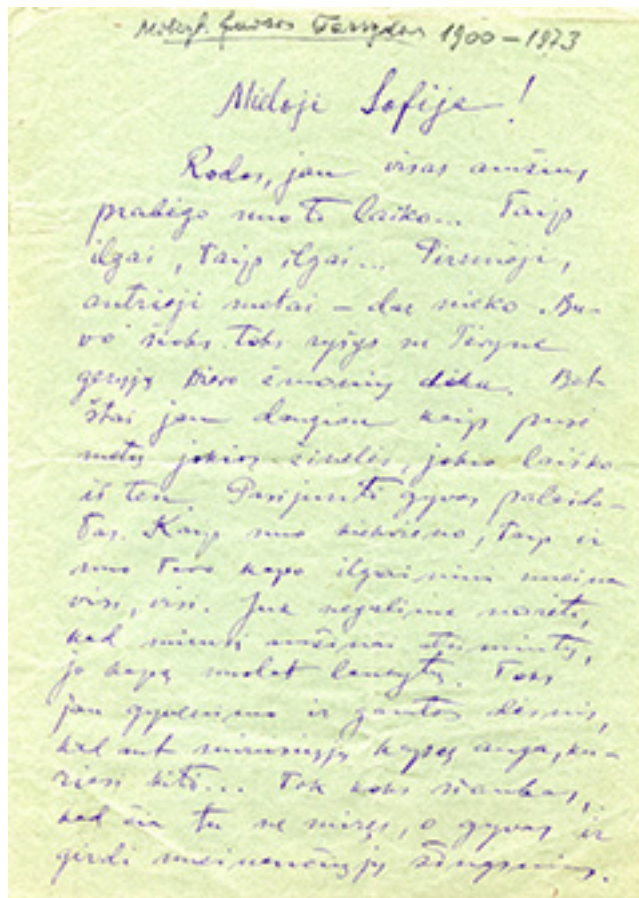 1900–1973
Mieloji Sofija!
Rodos, jau visas amžius
prabėgo nuo to laiko... Taip
ilgai, taip ilgai... Pirmieji,
antrieji metai – dar nieko. Bu-
vo šioks toks ryšys su Tėvyne
gerųjų žmonių dėka. Bet
štai jau daugiau kaip pusė
metų jokios žinelės, jokio laiško
iš ten. Pasijunti gyvas palaido-
tas. Kaip nuo kiekvieno, taip ir
nuo tavo kapo ilgainiui nueina
visi, visi. Juk negalima norėti,
kad mirusį amžinai atsimintų,
jo kapą nuolat lankytų. Toks
jau gyvenimo ir gamtos dėsnis,
kad ant mirusiųjų kapų auga, ku-
riasi kiti... Tik koks siaubas,
kad čia tu ne miręs, o gyvas ir
girdi nueinančiųjų žingsnius.